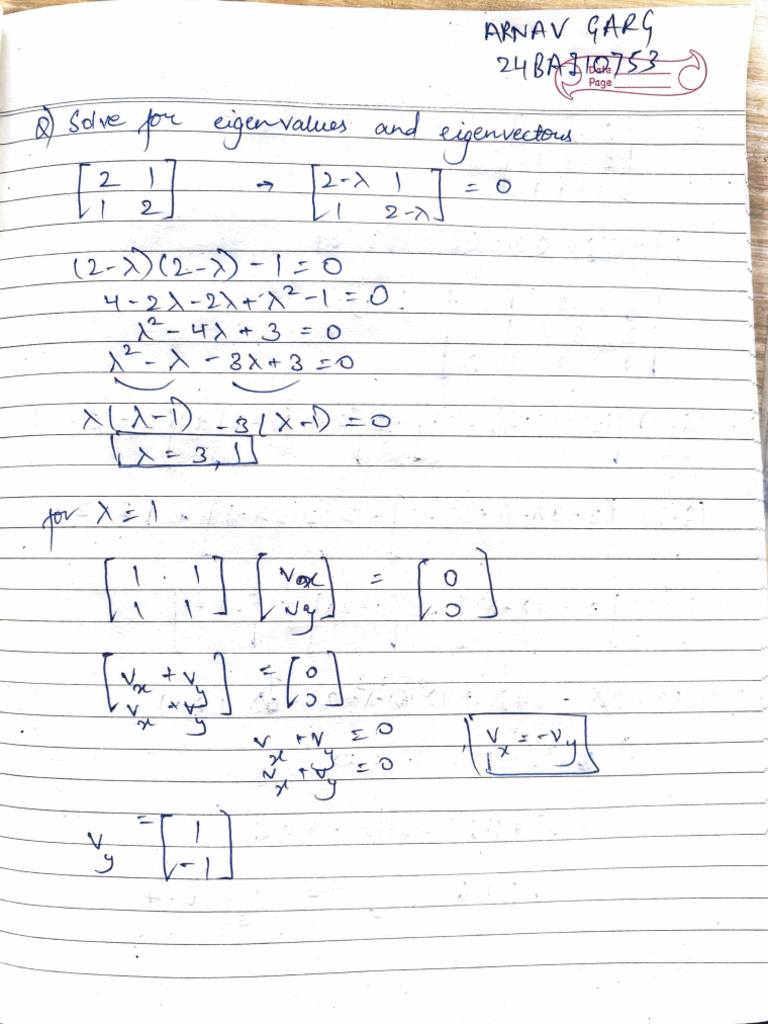 ARNAV GARG
24BAI10753
Date
Page
Q) Solve for eigenvalues and eigenvectors
[2 1; 1 2] → [2-λ 1; 1 2-λ] = 0
(2-λ)(2-λ) - 1 = 0
4 - 2λ - 2λ + λ² - 1 = 0
λ² - 4λ + 3 = 0
λ² - λ - 3λ + 3 = 0
λ(λ-1) - 3(λ-1) = 0
λ = 3, 1
for λ = 1
[1 1; 1 1] [vx; vy] = [0; 0]
[vx + vy; vx + vy] = [0; 0]
vx + vy = 0
vx + vy = 0
vx = -vy
vy = [1; -1]